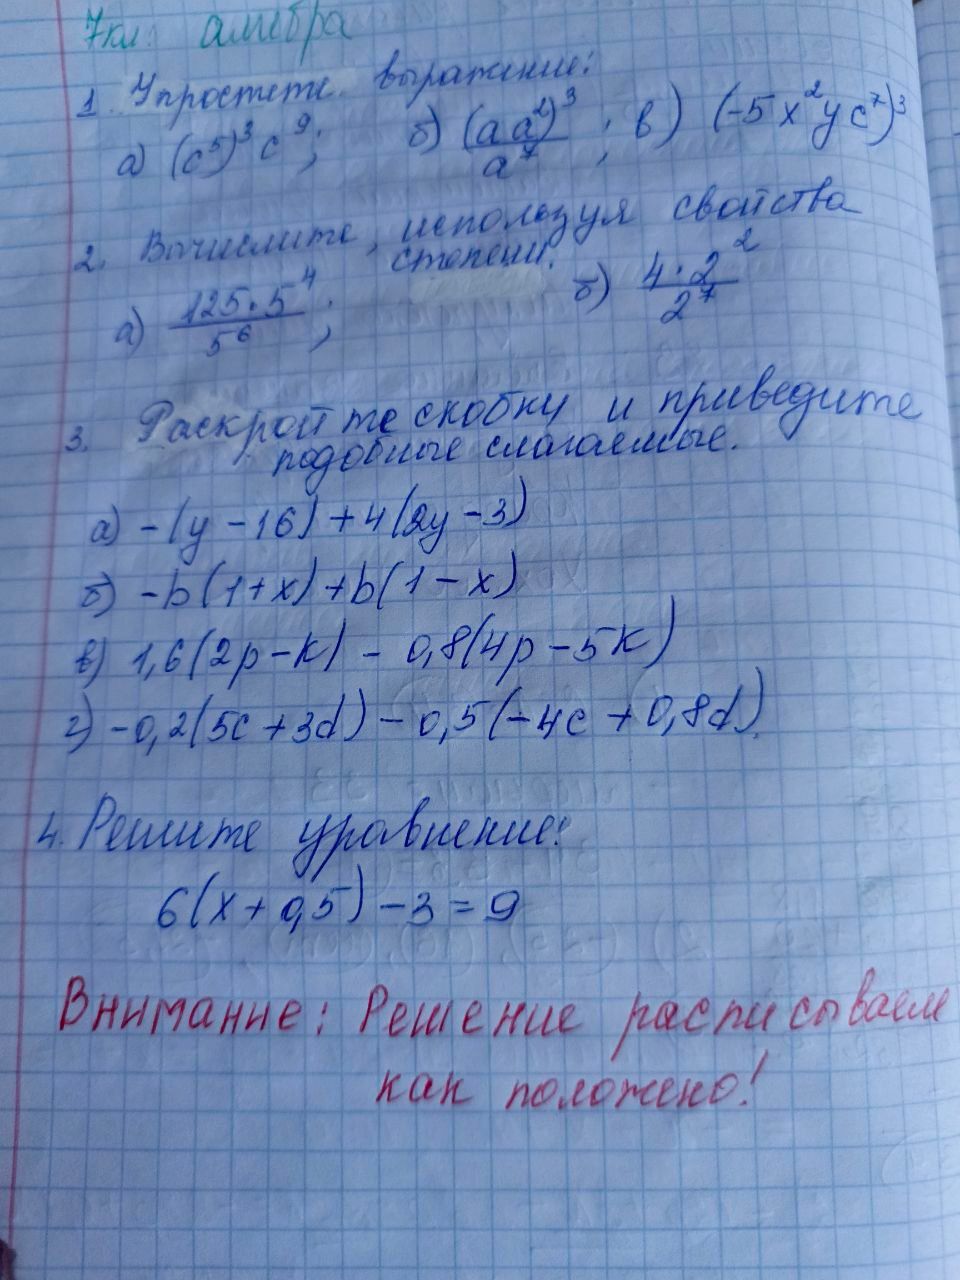 7кл. алгебра
1. Упростете выражение:
а) (c⁵)³c⁹; б) (aa²)³/a⁷; в) (-5x²yc⁷)³
2. Вычислите, используя свойства
степени.
а) 125·5⁴/5⁶; б) 4·2²/2⁷
3. Раскройте скобку и приведите
подобные слагаемые.
а) -(y-16)+4(2y-3)
б) -b(1+x)+b(1-x)
в) 1,6(2p-k)-0,8(4p-5k)
г) -0,2(5c+3d)-0,5(-4c+0,8d)
4. Решите уравнение:
6(x+0,5)-3=9
Внимание: Решение расписываем
как положено!